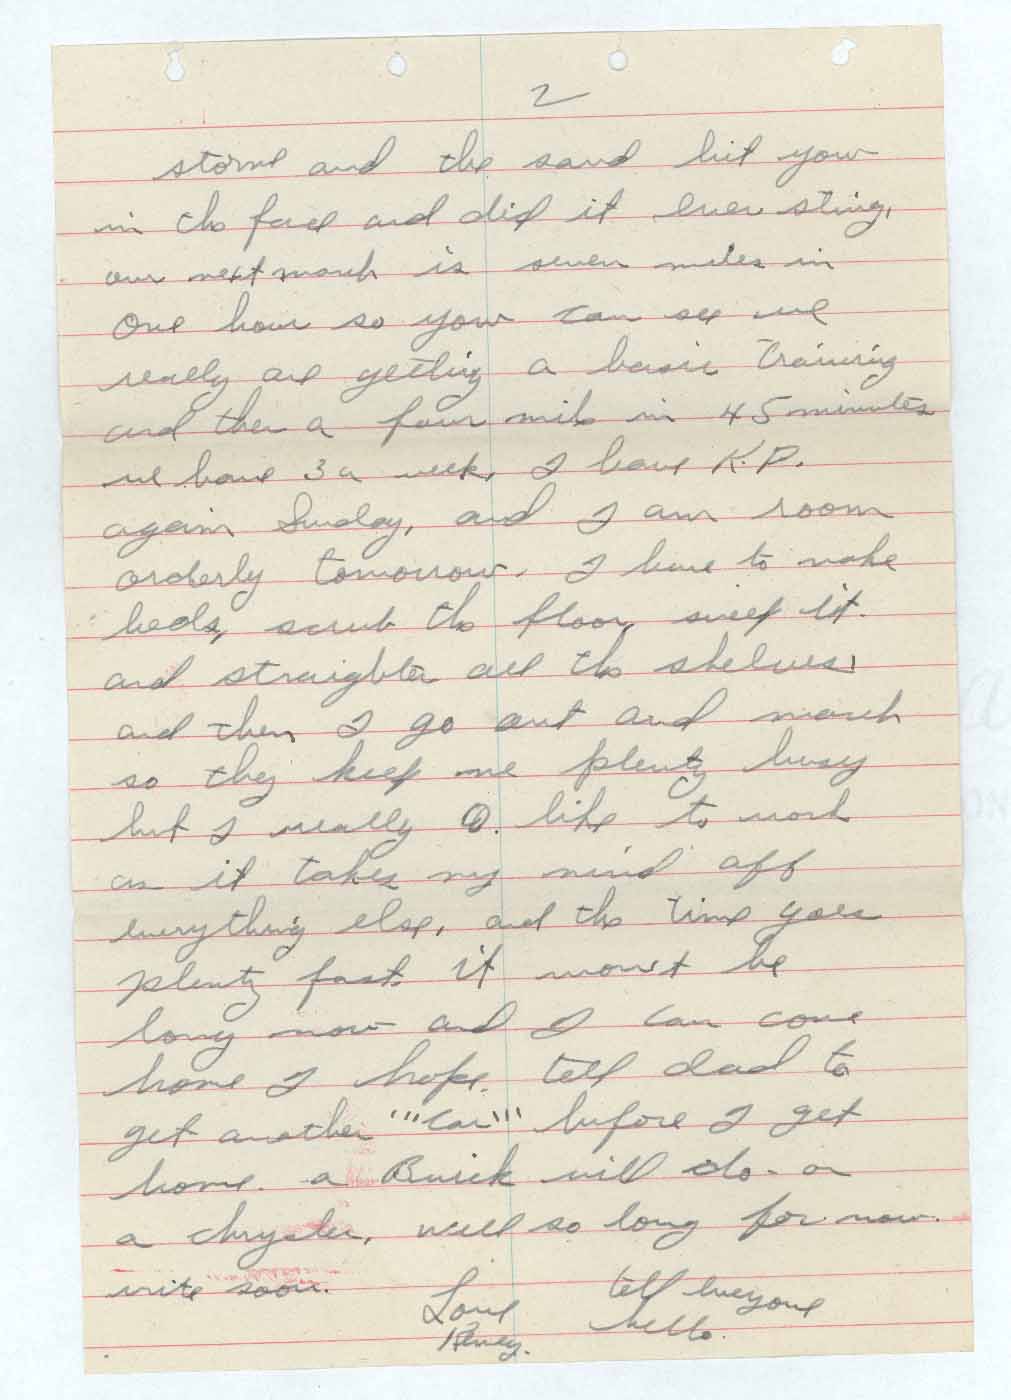 2
storm and the sand hit your
in the face and did it ever sting,
our next march is seven miles in
One hour so your can see we
really are getting a basic training
and then a four mile in 45 minutes
we have 3 a week, I have K.P.
again Sunday, and I am room
orderly tomorrow. I have to make
beds, scrub the floor, sweep it.
and straighten all the shelves,
and then I go out and march
so they keep me plenty busy
but I really like to work
as it takes my mind off
everything else, and the time goes
plenty fast. it won't be
long now and I can come
home I hope. tell dad to
get another """car""" before I get
home. a Buick will do. or
a chrysler, well so long for now.
write soon.
Love tell everyone
hello.